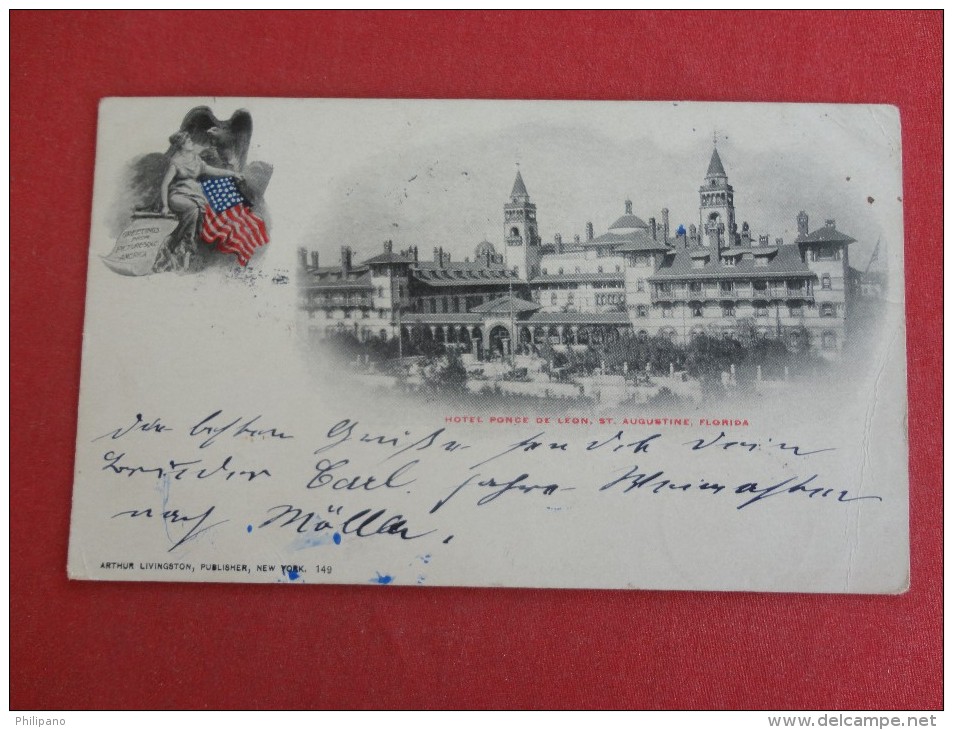 GREETINGS
FROM
PICTURESQUE
AMERICA
HOTEL PONCE DE LEON, ST. AUGUSTINE, FLORIDA
die besten Grüße sendet dein
Bruder Carl. fahre Weinachten
nach Möller.
ARTHUR LIVINGSTON, PUBLISHER, NEW YORK. 149
Philipano
www.delcampe.net